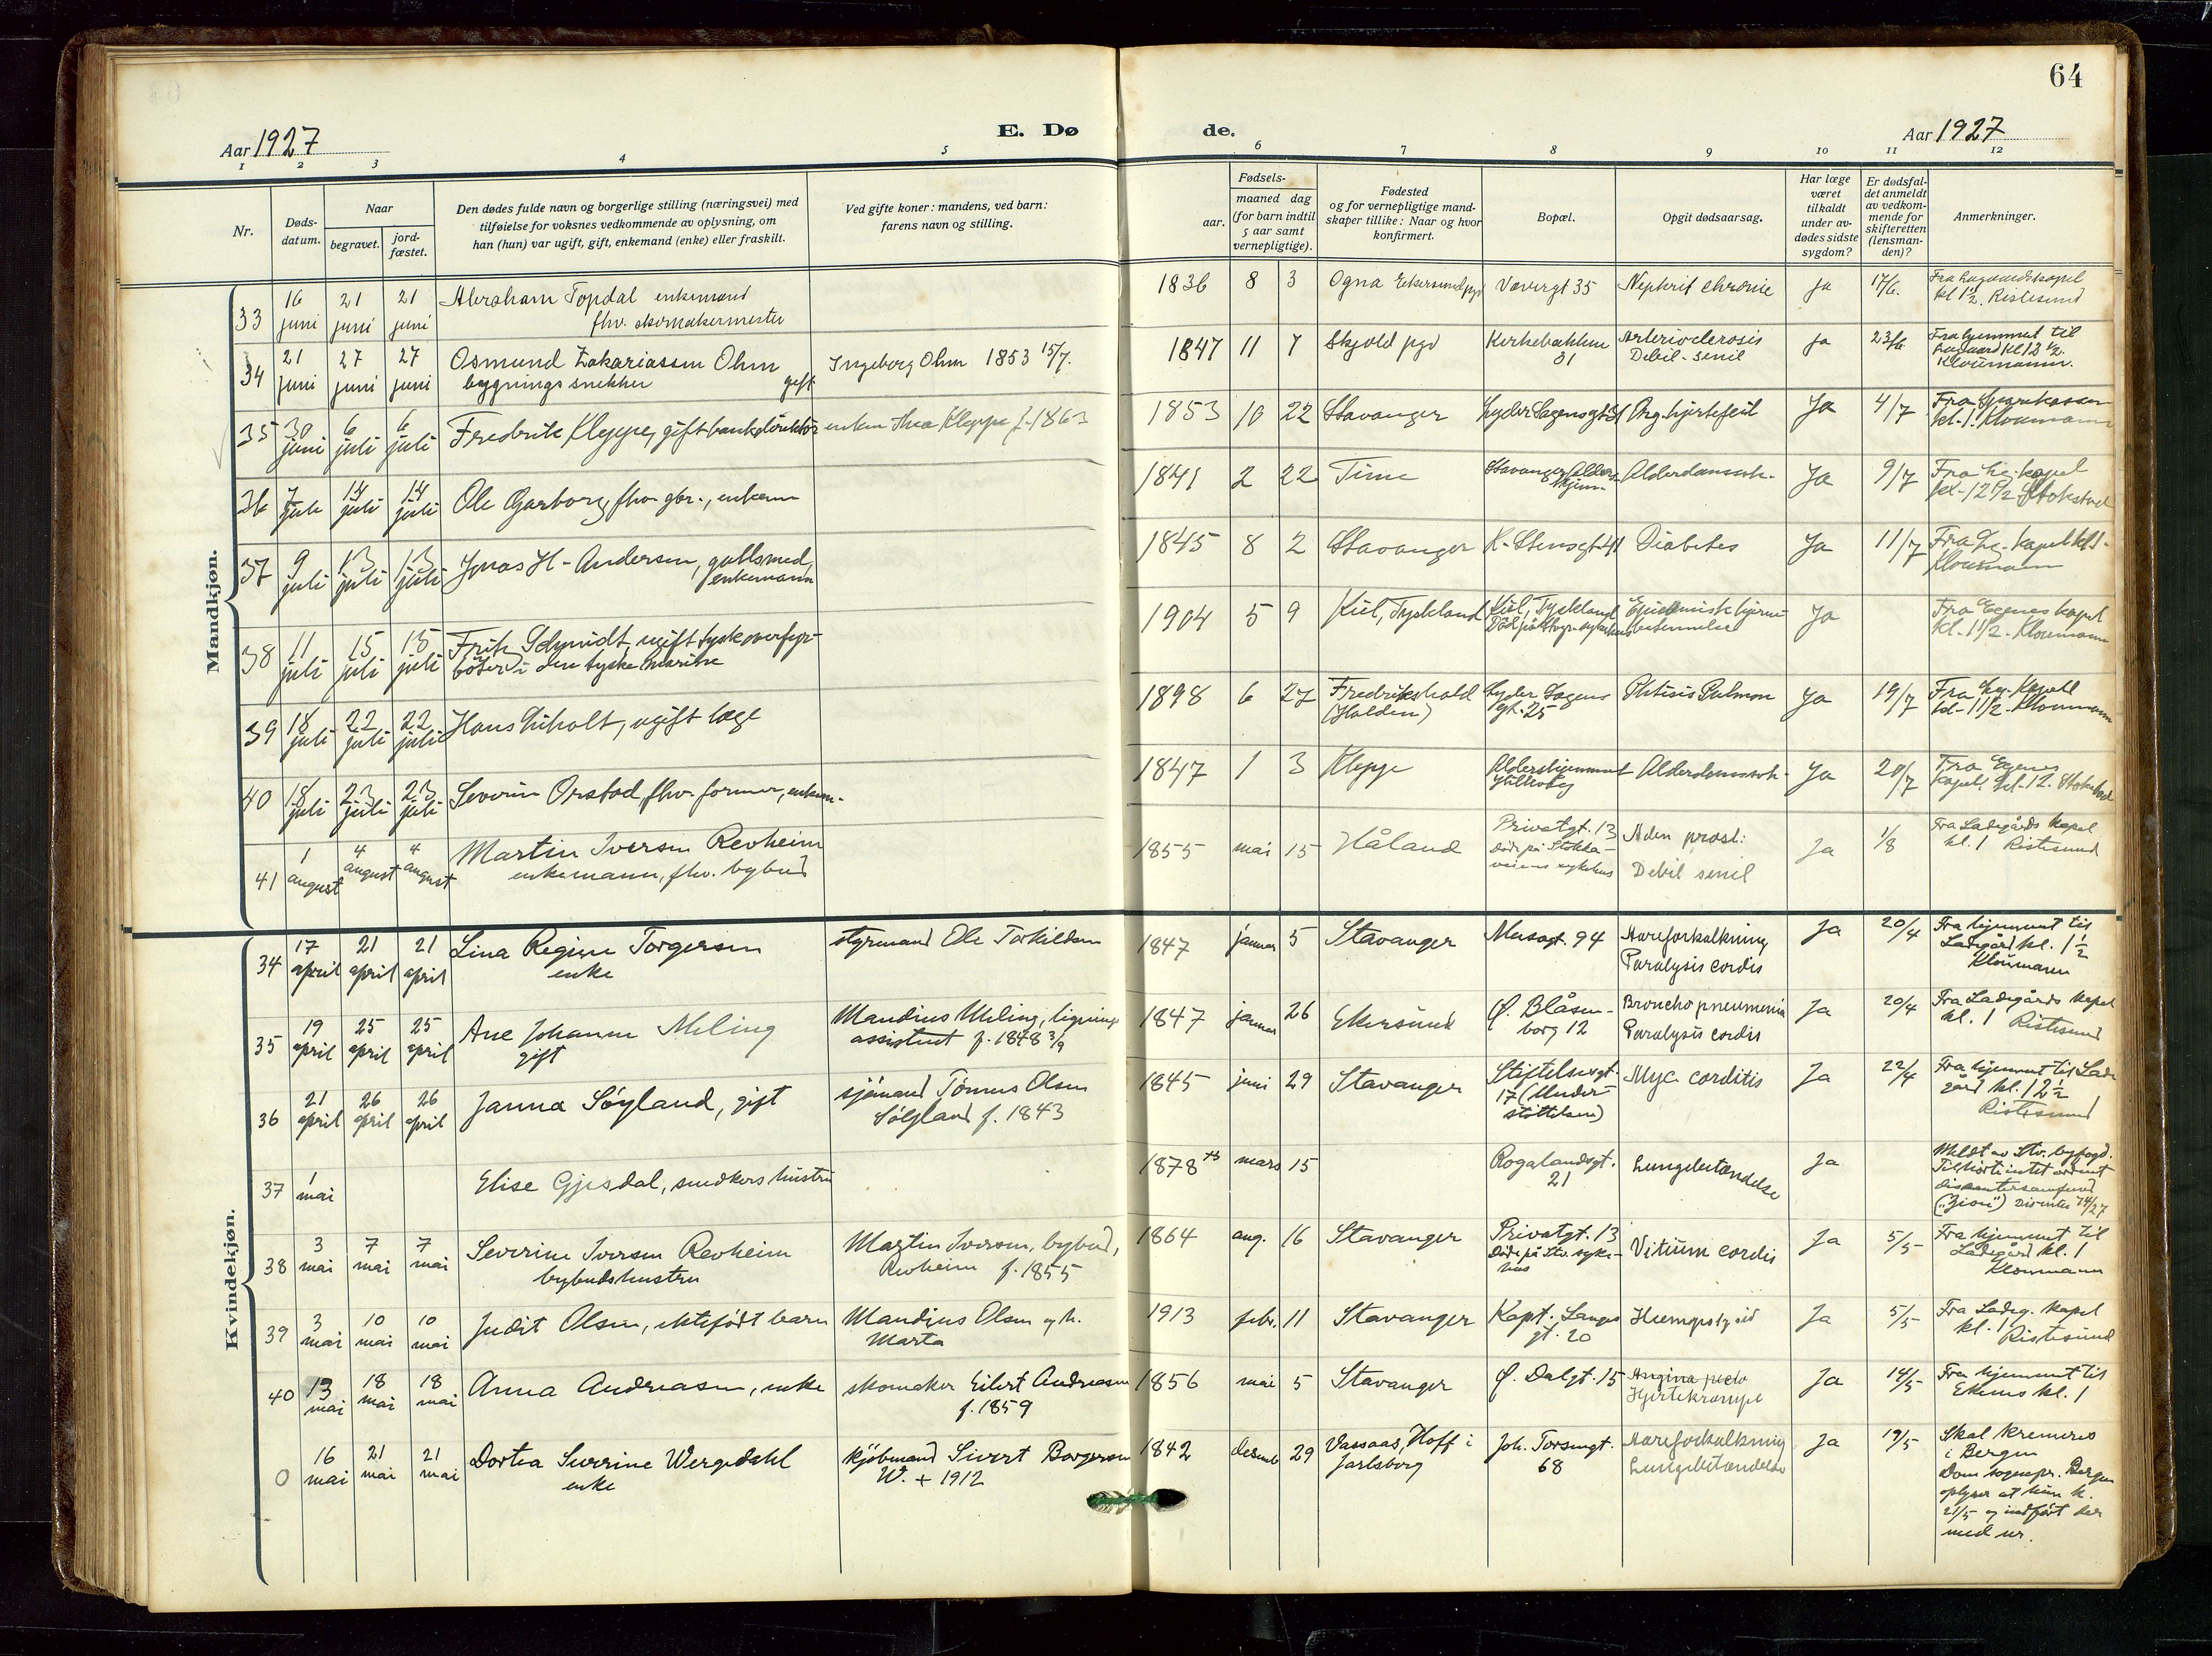 64
Aar 1927
E. Dø
de.
Aar 1927
1 2 3 4 5 6 7 8 9 10 11 12
Nr.
Døds-
datum.
Naar
begravet.
jord-
fæstet.
Den dødes fulde navn og borgerlige stilling (næringsvei) med
tilføielse for voksnes vedkommende av oplysning, om
han (hun) var ugift, gift, enkemand (enke) eller fraskilt.
Ved gifte koner: mandens, ved barn:
farens navn og stilling.
Fødsels-
aar.
maaned dag
(for barn indtil
5 aar samt
vernepligtige).
Fødested
og for vernepligtige mand-
skaper tillike: Naar og hvor
konfirmert.
Bopæl.
Opgit dødsaarsag.
Har læge
været
tilkaldt
under av-
dødes sidste
sygdom?
Er dødsfal-
det anmeldt
av vedkom-
mende for
skifteretten
(lensman-
den)?
Anmerkninger.
Mandkjøn.
33 16 juni 21 juni 21 juni Abraham Topdal enkemand
fhv. skomakermester
1836 8 3 Ogna Ekersund pgd Vavergt 35 Nephrit chronic ja 17/6. Fra Lagaardskapel
kl 1½. Ristesund
34 21 juni 27 juni 27 juni Osmund Zakariassen Ohm
bygningssnekker gift
Ingeborg Ohm 1853 15/7.
1847 11 7 Skjold pgd Kirkebakken
31
Arteriosclerosis
Debil-senil
ja 23/6 Fra hjemmet til
Lagaard kl 12½.
Kloumann.
35 30 juni 6 juli 6 juli Fredrik Kleppe, gift bankdirektør enken Thea Kleppe f. 1863
1853 10 22 Stavanger Lyder Sagensgt 31 Org. hjertefeil Ja 4/7 Fra Sparekassen
kl. 1. Kloumann
36 7 juli 14 juli 14 juli Ole Garborg, fhv. gbr., enkem
1841 2 22 Time Stavanger Alders
hjem-
Alderdomssvk. Ja 9/7 Fra Lg. kapel
kl. 12½ Stokstad
37 9 juli 13 juli 13 juli Jonas H. Andersen, gullsmed,
enkemann
1845 8 2 Stavanger K. Stensgt 41 Diabetes Ja 11/7 Fra Lg. kapel kl 1.
Kloumann
38 11 juli 15 juli 15 juli Fritz Schmidt, ugift tysk overfyr-
böter i den tyske marine
1904 5 9 Kiel, Tyskland Kiel, Tyskland
Död på Stvgr. sykehus
Epidemisk hjerne
betennelse
Ja Fra Egenes kapel
kl. 1½. Kloumann
39 18 juli 22 juli 22 juli Hans Giholt, ugift læge
1898 6 27 Fredrikshald
(Halden)
Lyder Sagens
gt. 25
Phtisis Pulmon Ja 19/7 Fra Lg. Kapell
kl. 1½. Kloumann
40 18 juli 23 juli 23 juli Severin Orstad, fhv. former, enkem.
1847 1 3 Kleppe Aldershjemmet
Alderdomssvk. Ja 20/7 Fra Egenes
kapel. kl. 12. Stokstad
41 1 august 4 august 4 august Martin Iversen Revheim
enkemann, fhv. bybud
1855 mai 15 Håland Privatgt. 13
död på Stokka-
veiens sykehus
Aden prost:
Debil senil
Ja 1/8 Fra Ladegårds kapel
kl. 1 Ristesund
Kvindekjøn.
34 17 april 21 april 21 april Lina Regine Torgersen
enke
styrmand Ole Torkildsen
1847 januar 5 Stavanger Musegt. 94 Aareforkalkning
Paralysis cordis
Ja 20/4 Fra hjemmet til
Ladegård kl. 1½
Kloumann
35 19 april 25 april 25 april Ane Johanne Meling
gift
Mandius Meling, lignings
assistent f. 1848 3/9
1847 januar 26 Ekersund Ø. Blåsen-
borg 12
Bronchopneumonia
Paralysis cordis
Ja 20/4 Fra Ladegårds kapel
kl. 1 Ristesund
36 21 april 26 april 26 april Janna Söyland, gift
sjömand Tönnes Olsen
Söyland f. 1843
1845 juni 29 Stavanger Stiftelsesgt.
17 (Under-
stöttelsen)
Myc. corditis Ja 22/4 Fra hjemmet til Lade
gård kl. 12½
Ristesund
37 1 mai Elise Gjesdal, snedkers hustru
1878 mars 15 Rogalandsgt.
21
Lungebetændelse Ja Meldt av Stv. byfogd.
Tilhörte intet ordnet
dissentersamfund
("Zion")
38 3 mai 7 mai 7 mai Severine Iversen Revheim
bybudshustru
Martin Iversen, bybud,
Revheim f. 1855
1864 aug. 16 Stavanger Privatgt. 13
död på Stv. syke-
hus
Vitium cordis Ja 5/5 Fra hjemmet til
Ladegård kl. 1
Kloumann
39 3 mai 10 mai 10 mai Judit Olsen, ektefödt barn
Mandius Olsen og h.
Marta
1913 febr. 11 Stavanger Kapt. Langes
gt. 20
Ja 5/5 Fra Ladeg. kapel
kl. 1
Ristesund
40 13 mai 18 mai 18 mai Anna Andreasen, enke
skomaker Eilert Andreasen
f. 1859
1856 mai 5 Stavanger Ø. Dalgt. 15 Angina pecto
Hjertekrampe
Ja 14/5 Fra hjemmet til
Ekenes kl. 1
0 16 mai 21 mai 21 mai Dortea Severine Wergedahl
enke
kjöbmand Sivert Borgersen
W. + 1912
1842 desemb 29 Vassaas, Hoff i
Jarlsberg
Joh. Torsengt.
68
Aareforkalkning
Lungebetændelse
Ja 19/5 Skal kremeres
i Bergen
Dom. sognepr. Bergen
oplyser at hun k.
21/5 og indfört der
med nr.